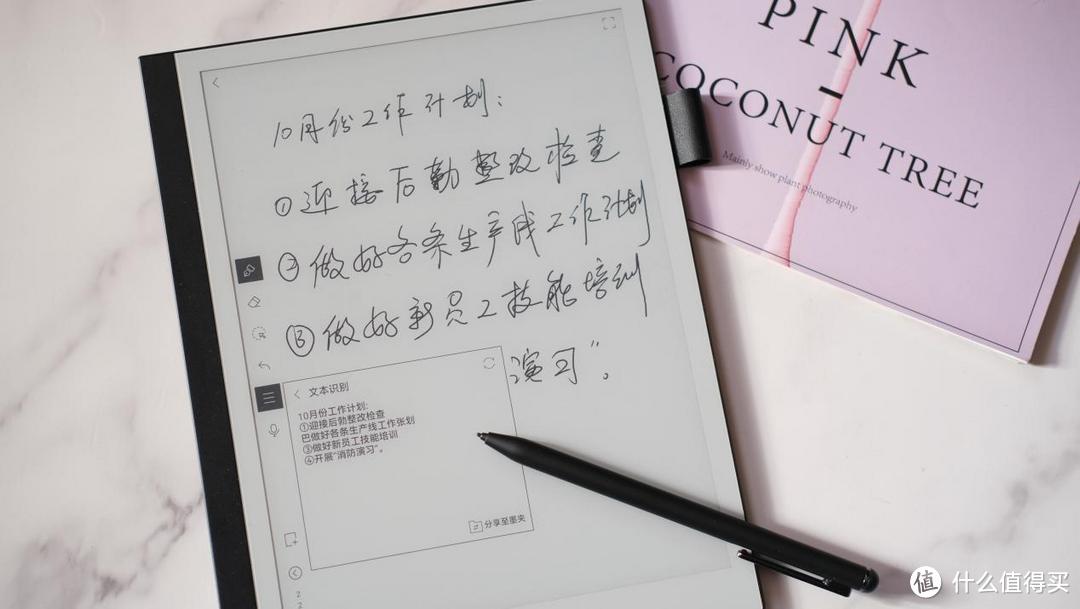 10月份工作计划:
①迎接后勤整改检查
②做好各条生产线工作计划
③做好新员工技能培训
演习”。
文本识别
10月份工作计划:
①迎接后勃整改检查
巴做好各条生产线工作张划
③做好新员工技能培训
④开展“消防演习”。
分享至墨夹
PINK
COCONUT TREE
Mainly show plant photography
值 什么值得买